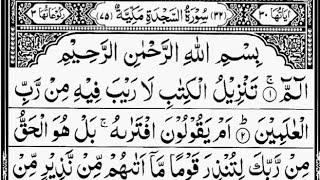 اٰیَاتُهَا ٣٠ (٣٢) سُوْرَةُ السَّجْدَةِ مَدَنِیَّةٌ (٧٥) رُكُوْعَاتُهَا ٣
بِسْمِ اللّٰهِ الرَّحْمٰنِ الرَّحِیْمِ
الٓمّٓ ۚ ﴿١﴾ تَنْزِیْلُ الْكِتٰبِ لَا رَیْبَ فِیْهِ مِنْ رَّبِّ
الْعٰلَمِیْنَ ؕ ﴿٢﴾ اَمْ یَقُوْلُوْنَ افْتَرٰىهُ ۚ بَلْ هُوَ الْحَقُّ
مِنْ رَّبِّكَ لِتُنْذِرَ قَوْمًا مَّاۤ اَتٰىهُمْ مِّنْ نَّذِیْرٍ مِّنْ